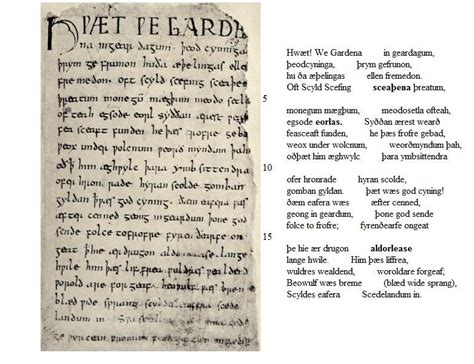 HǷÆT ǷE GARDE
na ingear dagum. þeod cyninga
þrym ge frunon huða æþelingas elle
fre medon. oft scyld scefing sceaþe
þreatum monegū mægþum meodo setla
of teah egsode eorl syððan ærest ƿear
fea sceaft funden he þæs frofre geba
ƿeox under ƿolcnum ƿeorð myndum þah
oð þ him æghƿylc þara ymb sittendra
ofer hron rade hyran scolde gomban
gyldan þ ƿæs god cyning. ðæm eafera ƿæs
æfter cenned geong ingeardum þone god
sende folce tofrofre fyren ðearfe on
geat þ hie ær drugon aldor ase. lange
hƿile him þæs lif frea ƿuldres ƿealdend
ƿorold are for geaf. beoƿulf ƿæs breme
blæd ƿide sprang scyldes eafera scede
landum in.
Hwæt! We Gardena in geardagum,
þeodcyninga, þrym gefrunon,
hu ða æþelingas ellen fremedon.
Oft Scyld Scefing sceaþena þreatum,
5 monegum mægþum, meodosetla ofteah,
egsode eorlas. Syððan ærest wearð
feasceaft funden, he þæs frofre gebad,
weox under wolcnum, weorðmyndum þah,
oðþæt him æghwylc þara ymbsittendra
10 ofer hronrade hyran scolde,
gomban gyldan. þæt wæs god cyning!
ðæm eafera wæs æfter cenned,
geong in geardum, þone god sende
folce to frofre; fyrenðearfe ongeat
15 þe hie ær drugon aldorlease
lange hwile. Him þæs liffrea,
wuldres wealdend, woroldare forgeaf;
Beowulf wæs breme (blæd wide sprang),
Scyldes eafera Scedelandum in.